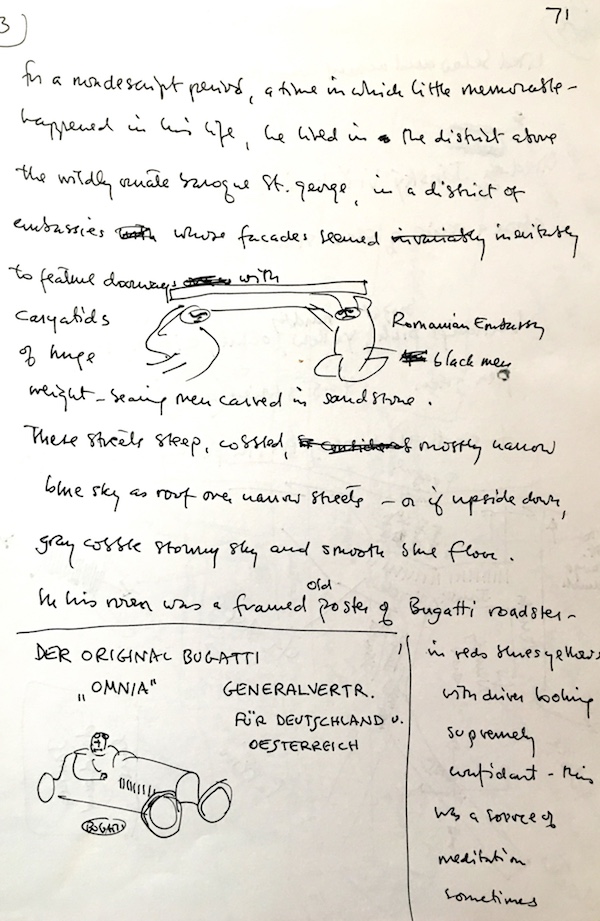 3
71
for a nondescript period, a time in which little memorable –
happened in his life, he lived in the district above
the wildly ornate baroque St. george, in a district of
embassies whose facades seemed invariably inevitably
to feature doorways with
caryatids
of huge
Romanian Embassy
black men
weight-bearing men carved in sandstone.
These streets steep, cobbled, mostly narrow
blue sky as roof over narrow streets – or if upside down,
gray cobble stormy sky and smooth blue floor.
old
In his room was a framed poster of Bugatti roadster –
DER ORIGINAL BUGATTI
„OMNIA" GENERALVERTR.
FÜR DEUTSCHLAND U.
OESTERREICH
BUGATTI
in reds blues yellows
with driver looking
supremely
confidant – this
was a source of
meditation
sometimes